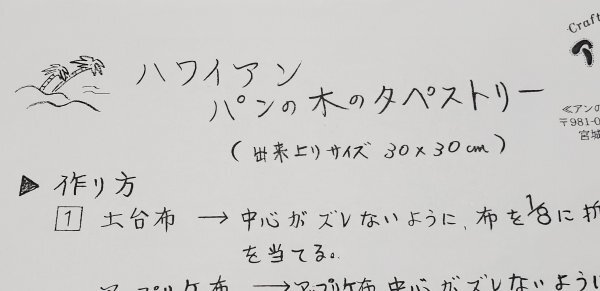 Craft
ハワイアン
パンの木のタペストリー
(出来上りサイズ 30×30cm)
≪アンの
〒981-0
宮城
▶ 作り方
1 土台布 → 中心がズレないように、布を1/8に折
を当てる。
アップリケ布 → アップリケ布中心がズレないように